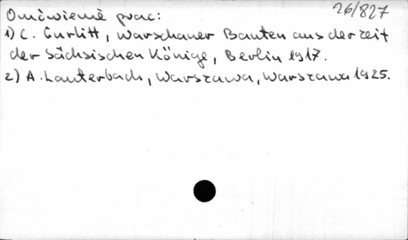 26/827
Omówienie prac:
1) C. Gurlitt, Warschauer Bauten aus der zeit
der Sächsischen Könige, Berlin 1917.
2) A. Lauterbach, Warszawa, Warszawa 1925.